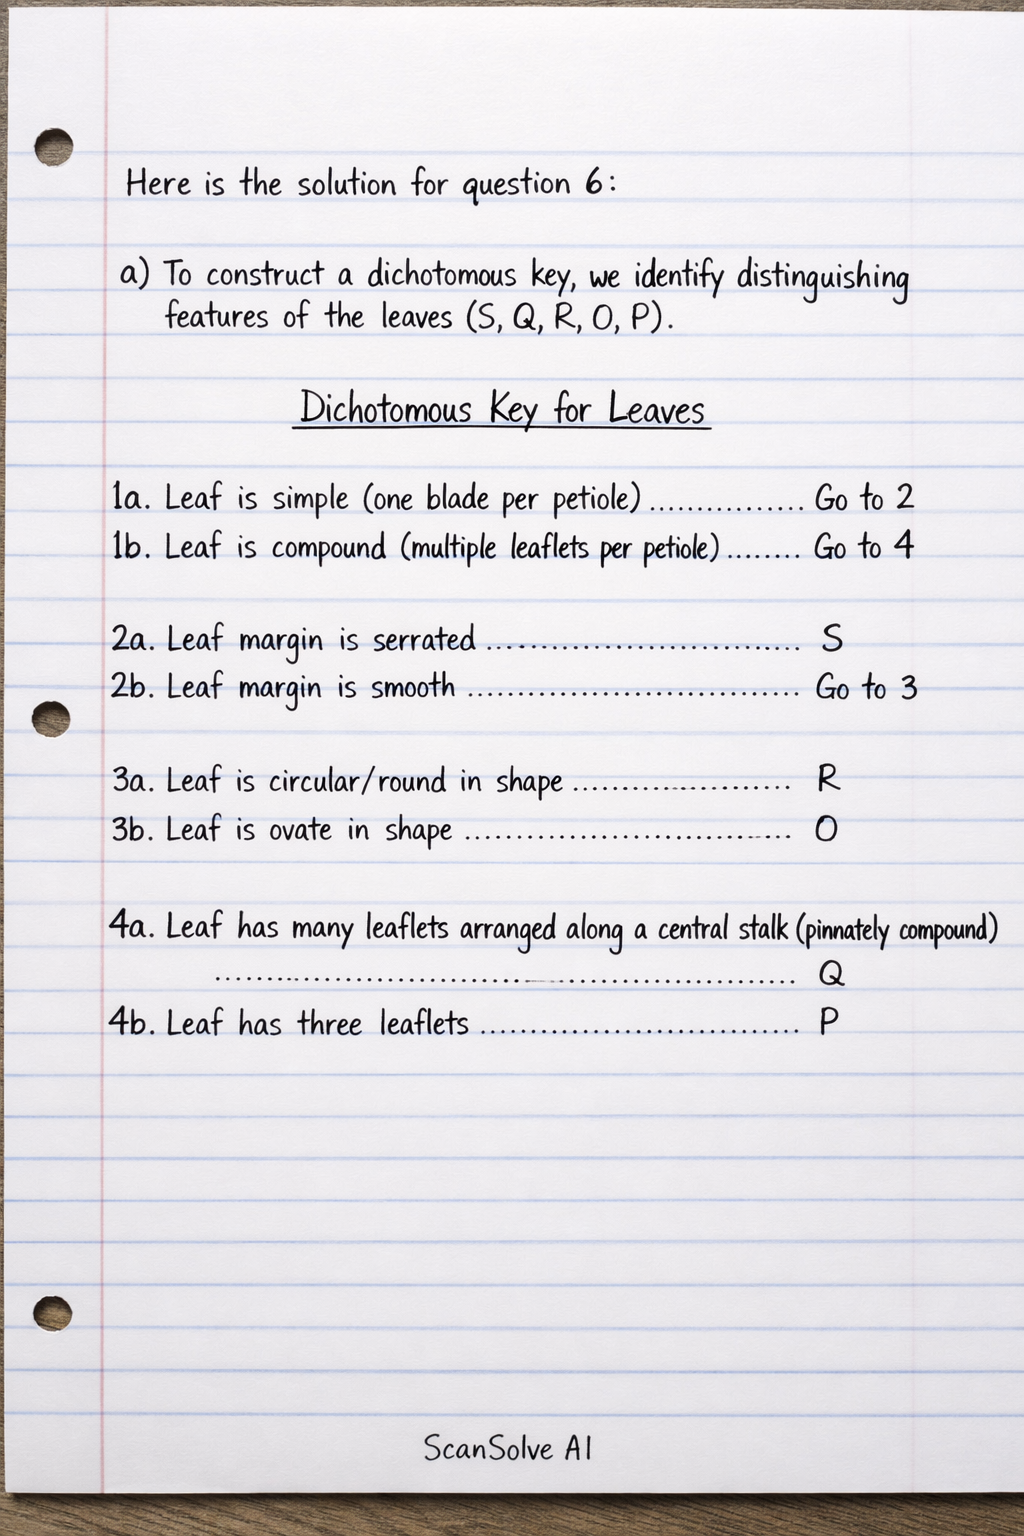 Here is the solution for question 6:
a) To construct a dichotomous key, we identify distinguishing
features of the leaves (S, Q, R, O, P).
Dichotomous Key for Leaves
1a. Leaf is simple (one blade per petiole) ................ Go to 2
1b. Leaf is compound (multiple leaflets per petiole) ........ Go to 4
2a. Leaf margin is serrated ................................ S
2b. Leaf margin is smooth .................................. Go to 3
3a. Leaf is circular/round in shape ....................... R
3b. Leaf is ovate in shape ................................. O
4a. Leaf has many leaflets arranged along a central stalk (pinnately compound)
............................................................ Q
4b. Leaf has three leaflets ................................ P
ScanSolve AI